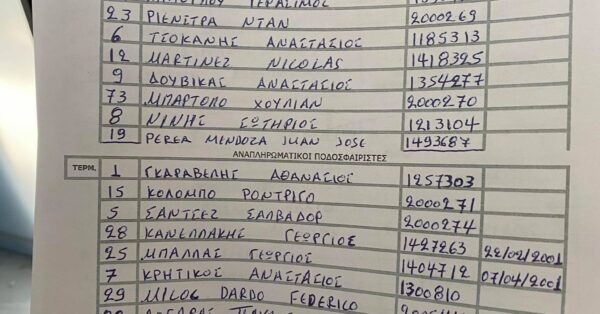 23 ΡΙΕΝΣΤΡΑ ΝΤΑΝ 2000269
6 ΤΣΟΚΑΝΗΣ ΑΝΑΣΤΑΣΙΟΣ 1185313
12 ΜΑRΤΙΝΕΖ NICOLAS 1418325
9 ΔΟΥΒΙΚΑΣ ΑΝΑΣΤΑΣΙΟΣ 1354277
73 ΜΠΑΡΤΟΛΟ ΧΟΥΛΙΑΝ 2000270
8 ΝΙΝΗΣ ΣΩΤΗΡΙΟΣ 1213104
19 PEREA MENDOZA JUAN JOSE 1493687
ΑΝΑΠΛΗΡΩΜΑΤΙΚΟΙ ΠΟΔΟΣΦΑΙΡΙΣΤΕΣ
ΤΕΡΜ. 1 ΓΚΑΡΑΒΕΛΗΣ ΑΘΑΝΑΣΙΟΣ 1257303
15 ΚΟΛΟΜΠΟ ΡΟΝΤΡΙΓΟ 2000271
5 ΣΑΝΤΣΕΖ ΣΑΛΒΑΔΟΡ 2000274
28 ΚΑΝΕΛΛΑΚΗΣ ΓΕΩΡΓΙΟΣ 1427263 22/02/2001
25 ΜΠΑΛΛΑΣ ΓΕΩΡΓΙΟΣ 1404712 07/04/2001
7 ΚΡΗΤΙΚΟΣ ΑΝΑΣΤΑΣΙΟΣ 1300810
29 MILOC DARDO FEDERICO